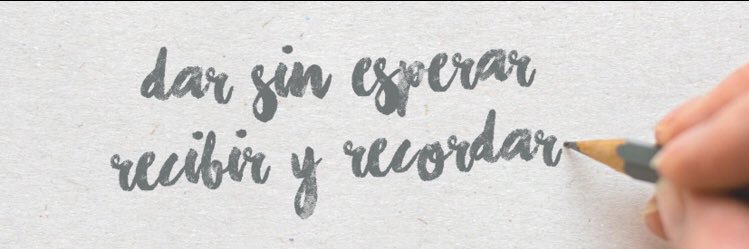 dar sin esperar
recibir y recordar